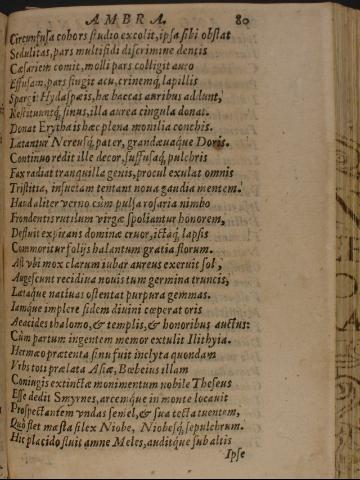 AMBRA. 80
Circunfusa cohors studio excolit, ipsa sibi obstat
Sedulitas, pars multifidi discrimine dentis
Cæsariem comit, molli pars colligit auro
Effusam, pars fingit acu, crinemq́, lapillis
Spargit Hydaspæis, hæ baccas auribus addunt,
Restituuntq́, sinus, illa aurea cingula donat.
Donat Erythæis hæc plena monilia conchis.
Lætantur Nereusq́, pater, grandæuaque Doris.
Continuo redit ille decor, suffusaq́, pulchris
Fax radiat tranquilla genis, procul exulat omnis
Tristitia, insuetam tentant noua gaudia mentem.
Haud aliter verno cùm pulsa rosaria nimbo
Frondentis rutilum virgæ spoliantur honorem,
Defluit expirans dominæ cruor, ictaq́, lapsis
Commoritur folijs halantum gratia florum.
At vbi mox clarum iubar aureus exeruit sol,
Augescunt recidiua nouis tum germina truncis,
Lætaque natiuas ostentat purpura gemmas.
Iamque implere fidem diuini cœperat oris
Aeacides thalamo, & templis, & honoribus auctus:
Cùm partum ingentem memor extulit Ilithyia.
Hermæo prætenta sinu fuit inclyta quondam
Vrbs toti prælata Asiæ, Bœbeius illam
Coniugis extinctæ monimentum nobile Theseus
Esse dedit Smyrnes, arcemque in monte locauit
Prospectantem vndas semel, & sua tecta tuentem,
Quò flet mæsta silex Niobe, Niobesq́, sepulchrum.
Hic placido fluit amne Meles, auditque sub altis
Ipse